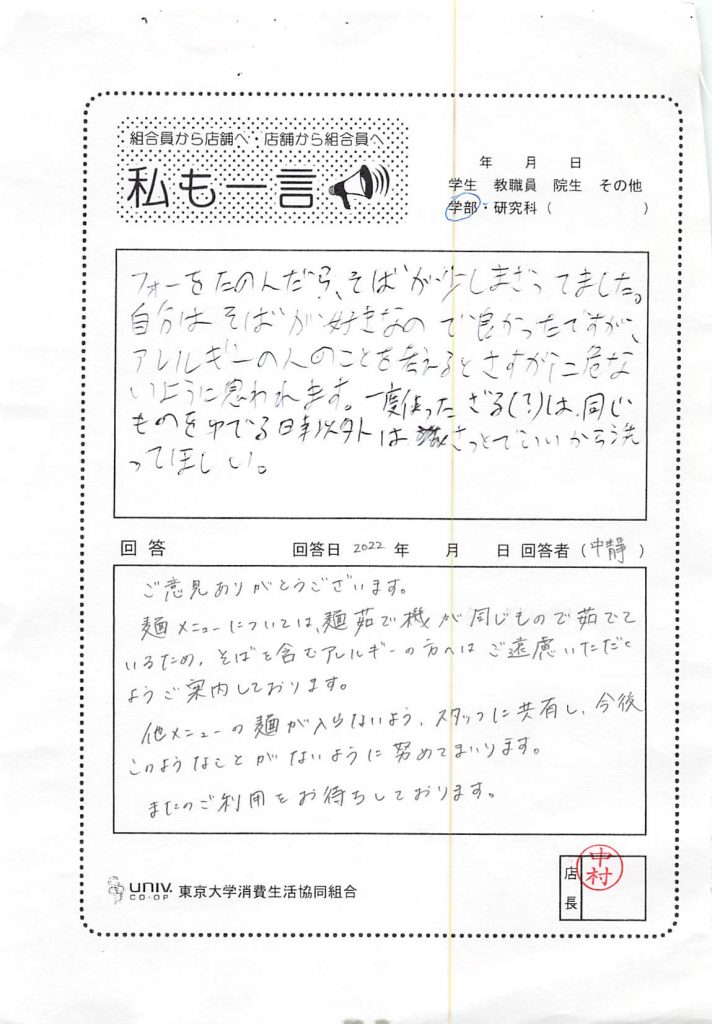 組合員から店舗へ・店舗から組合員へ
私も一言
年 月 日
学生 教職員 院生 その他
学部・研究科( )
フォーをたのんだら、そばが少しまざってました。
自分はそばが好きなので良かったですが、
アレルギーの人のことを考えるとさすがに危な
いように思われます。一度使ったざる(?)は、同じ
ものをゆでる時以外は さっとでいいから洗
ってほしい。
回答 回答日 2022 年 月 日 回答者(中静)
ご意見ありがとうございます。
麺メニューについては、麺茹で機が同じもので茹でて
いるため、そばを含むアレルギーの方へはご遠慮いただく
ようご案内しております。
他メニューの麺が入らないよう、スタッフに共有し、今後
このようなことがないように努めてまいります。
またのご利用をお待ちしております。
UNIV. CO-OP 東京大学消費生活協同組合
店長 中村